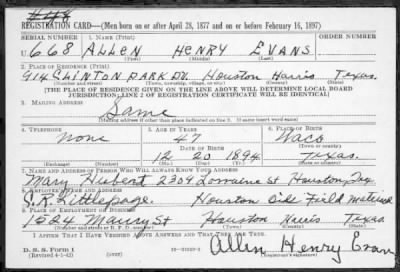 #48
REGISTRATION CARD—(Men born on or after April 28, 1877 and on or before February 16, 1897)
SERIAL NUMBER 1. NAME (Print) ORDER NUMBER
U668 ALLEN HENRY EVANS
(First) (Middle) (Last)
2. PLACE OF RESIDENCE (Print)
914 CLINTON PARK DV. Houston Harris Texas.
(Number and street) (Town, township, village, or city) (County) (State)
[THE PLACE OF RESIDENCE GIVEN ON THE LINE ABOVE WILL DETERMINE LOCAL BOARD
JURISDICTION; LINE 2 OF REGISTRATION CERTIFICATE WILL BE IDENTICAL]
3. MAILING ADDRESS
Same
[Mailing address if other than place indicated on line 2. If same insert word same]
4. TELEPHONE 5. AGE IN YEARS 6. PLACE OF BIRTH
None 47 Waco
DATE OF BIRTH (Town or county)
12 20 1894 Texas.
(Exchange) (Number) (Mo.) (Day) (Yr.) (State or country)
7. NAME AND ADDRESS OF PERSON WHO WILL ALWAYS KNOW YOUR ADDRESS
Mary Hubert 2309 Lorraine St Houston, Tex
S. R. Littlepage. Houston Field
1524 Maury St Houston Harris Texas
(Number and street or R. F. D. number) (Town) (County) (State)
I AFFIRM THAT I HAVE VERIFIED ABOVE ANSWERS AND THAT THEY ARE TRUE.
D. S. S. Form 1
(Revised 4-1-42) (over)
Allen Henry Evans
(Registrant's signature)